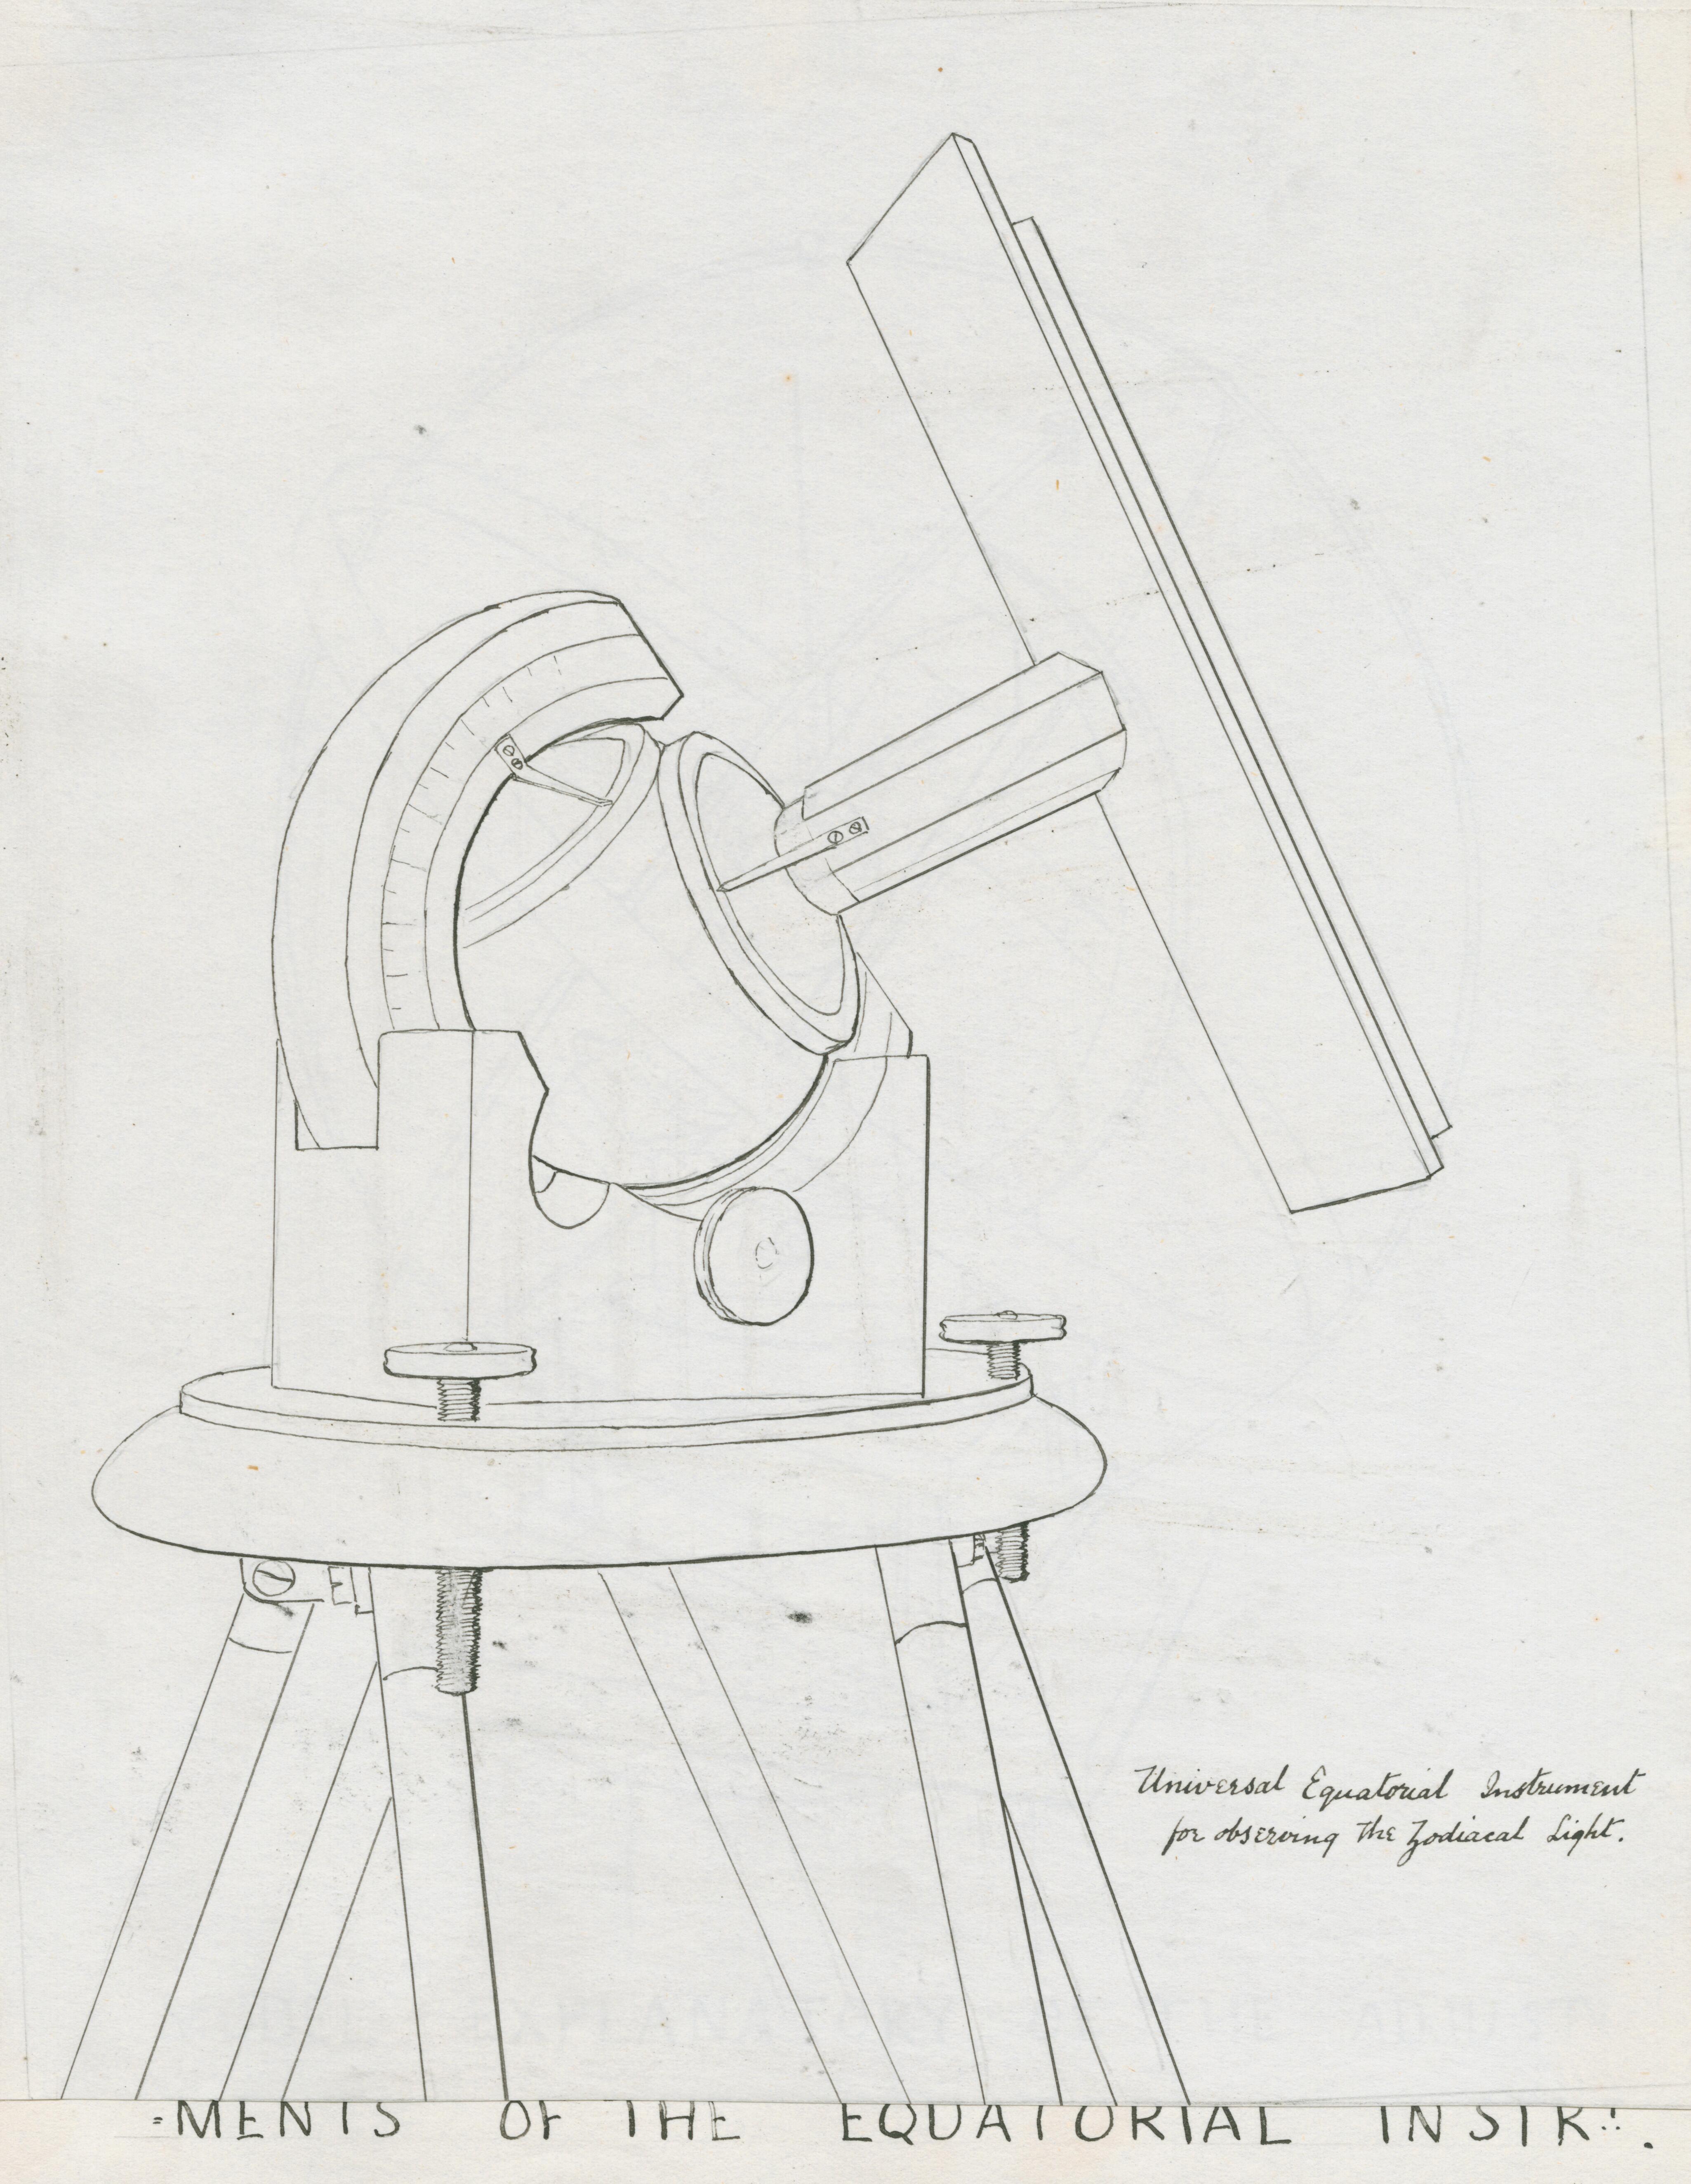 Universal Equatorial Instrument
for observing the Zodiacal Light.
=MENTS OF THE EQUATORIAL INSTR:.